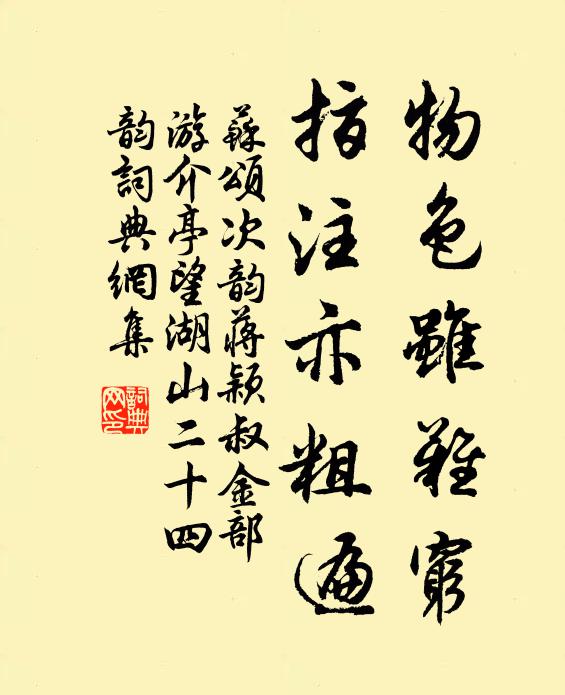 物色雖難窮
指注亦粗遍
蘇頌次韵蔣颖叔金部
游介亭望湖山二十四
韵詞典網集
詞典
网印